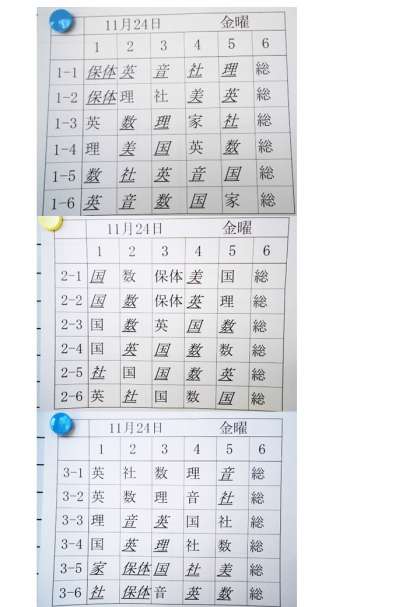 11月24日 金曜
1 2 3 4 5 6
1-1 保体 英 音 社 理 総
1-2 保体 理 社 美 英 総
1-3 英 数 理 家 社 総
1-4 理 美 国 英 数 総
1-5 数 社 英 音 国 総
1-6 英 音 数 国 家 総
11月24日 金曜
1 2 3 4 5 6
2-1 国 数 保体 美 国 総
2-2 国 数 保体 英 理 総
2-3 国 数 英 国 数 総
2-4 国 英 国 数 数 総
2-5 社 国 国 数 英 総
2-6 英 社 国 数 国 総
11月24日 金曜
1 2 3 4 5 6
3-1 英 社 数 理 音 総
3-2 英 数 理 音 社 総
3-3 理 音 英 国 社 総
3-4 国 英 理 社 数 総
3-5 家 保体 国 社 美 総
3-6 社 保体 音 英 数 総